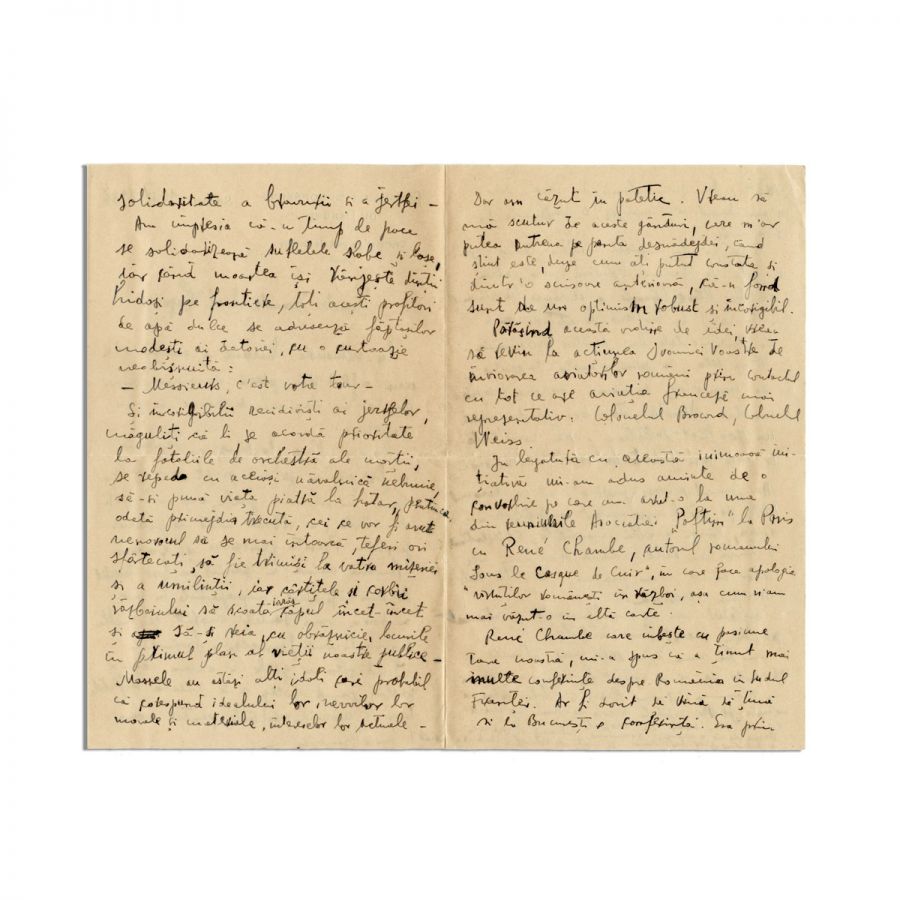 solidaritate a bravurii și a jertfei –
Am impresia că-n timp de pace
se solidarizează sufletele slabe și lașe,
iar când moartea își rânjește dinții
hidoși pe frontiere, toți acești profitori
de apă dulce se adresează făpturilor
modești ai datoriei, cu o curtoazie
neobișnuită:
– Messieurs, c'est votre tour –
Și incorigibilii recidiviști ai jertfelor,
măguliți că li se acordă prioritate
la fotoliile de orchestră ale morții,
se reped cu aceeași năvalnică nebunie,
să-și pună viața piatră la hotar, pentruca
odată primejdia trecută, cei ce vor fi avut
norocul să se mai întoarcă, teferi ori
sfârtecați, să fie trimiși la vatra mizeriei
și a umilinții, iar cârtițele și corbii
războiului să scoată iarăș capul încet-încet
și să-și reia, cu obrăznicie, locurile
în primul plan al vieții noastre publice –
Massele au astăzi alți idoli cari probabil
că corespund idealului lor, nevoilor lor
morale și materiale, intereselor lor actuale –
Dar am căzut în patetic. Vreau să
mă scutur de aceste gânduri, care m'ar
putea antrena pe panta desnădejdei, când
știut este, dupe cum ați putut constata și
dintr'o scrisoare anterioară, că-n fond
sunt de un optimism robust și incorigibil.
Părăsind această ordine de idei, vreau
să revin la acțiunea Domniei Voastre de
înviorarea aviatorilor români prin contactul
cu tot ce are aviația franceză mai
reprezentativ: Colonelul Brocard, Colonelul
Weiss.
În legătură cu această inimoasă ini-
țiativă mi-am adus aminte de o
convorbire pe care am avut-o la una
din reuniunile Asociației "Poftim" la Paris
cu René Chambe, autorul romanului
"Sous le Casque de Cuir", în care face apologia
virtuților românești în război, așa cum n'am
mai văzut-o în altă carte.
René Chambe care iubește cu pasiune
țara noastră, mi-a spus că a ținut mai
multe conferințe despre România în sudul
Franței. Ar fi dorit să vină să țină
și la București o conferință. Era prin